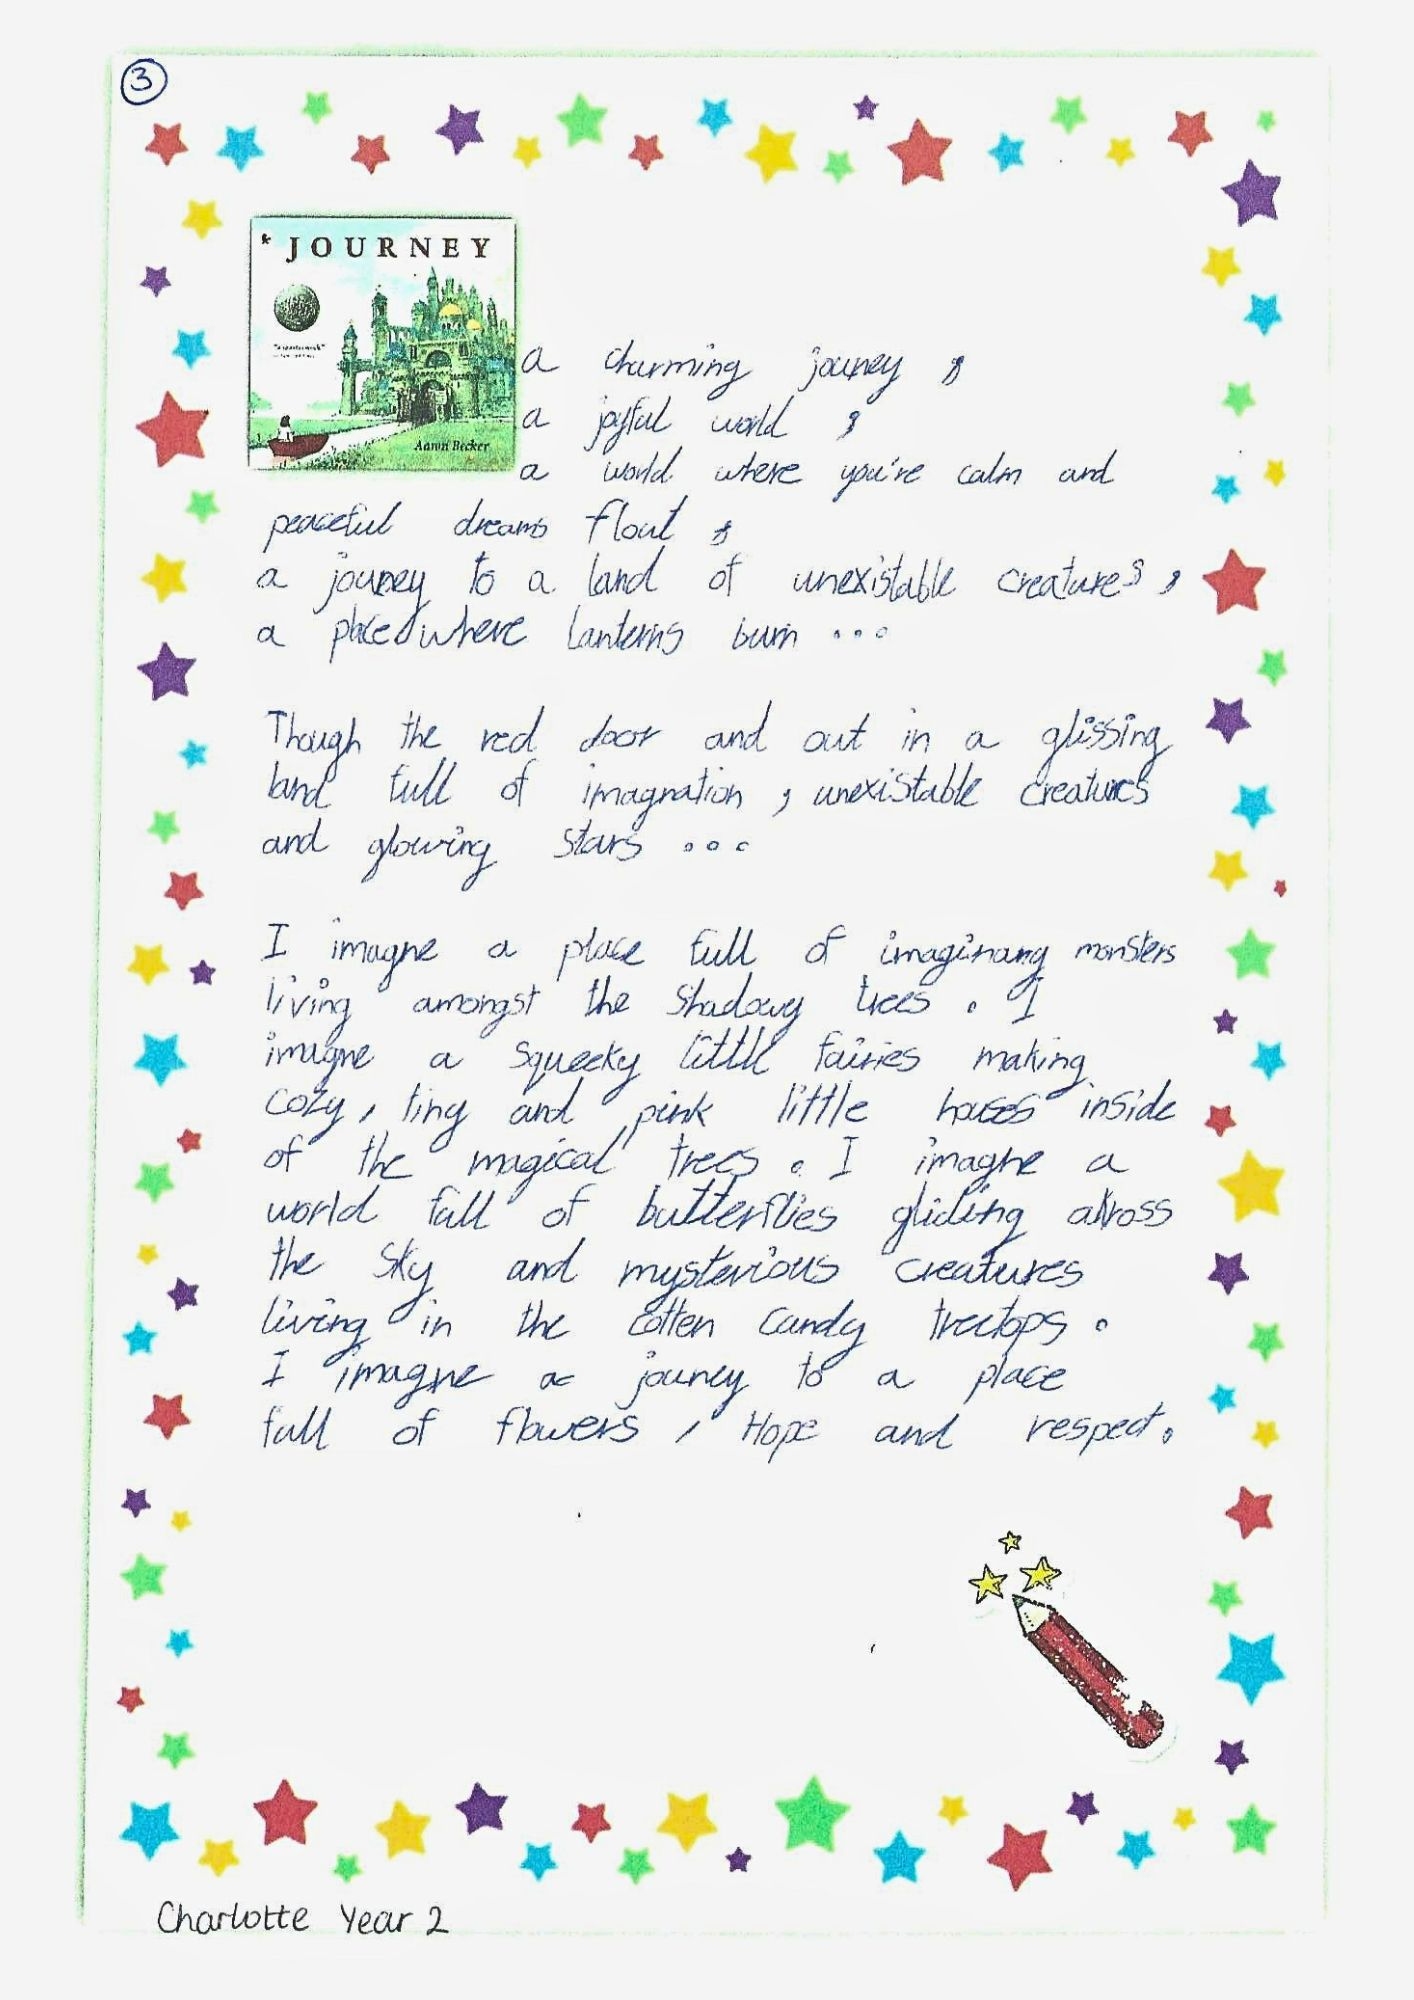 3
JOURNEY
Aaron Becker
a charming jouney,
a joyful world,
a world where you're calm and
peaceful dreams float,
a jouney to a land of unexistable creatures,
a place where lanterns burn ...
Though the red door and out in a glissing
land full of imagnation, unexistable creatures
and glowing stars ...
I imagne a place full of imaginary monsters
living amongst the shadowy trees. I
imagne a squeeky little fairies making
cozy, tiny and pink little houses inside
of the magical trees. I imagne a
world full of butterflies gliding across
the sky and mysterious creatures
living in the cotten candy treetops.
I imagne a jouney to a place
full of flowers, Hope and respect.
Charlotte Year 2